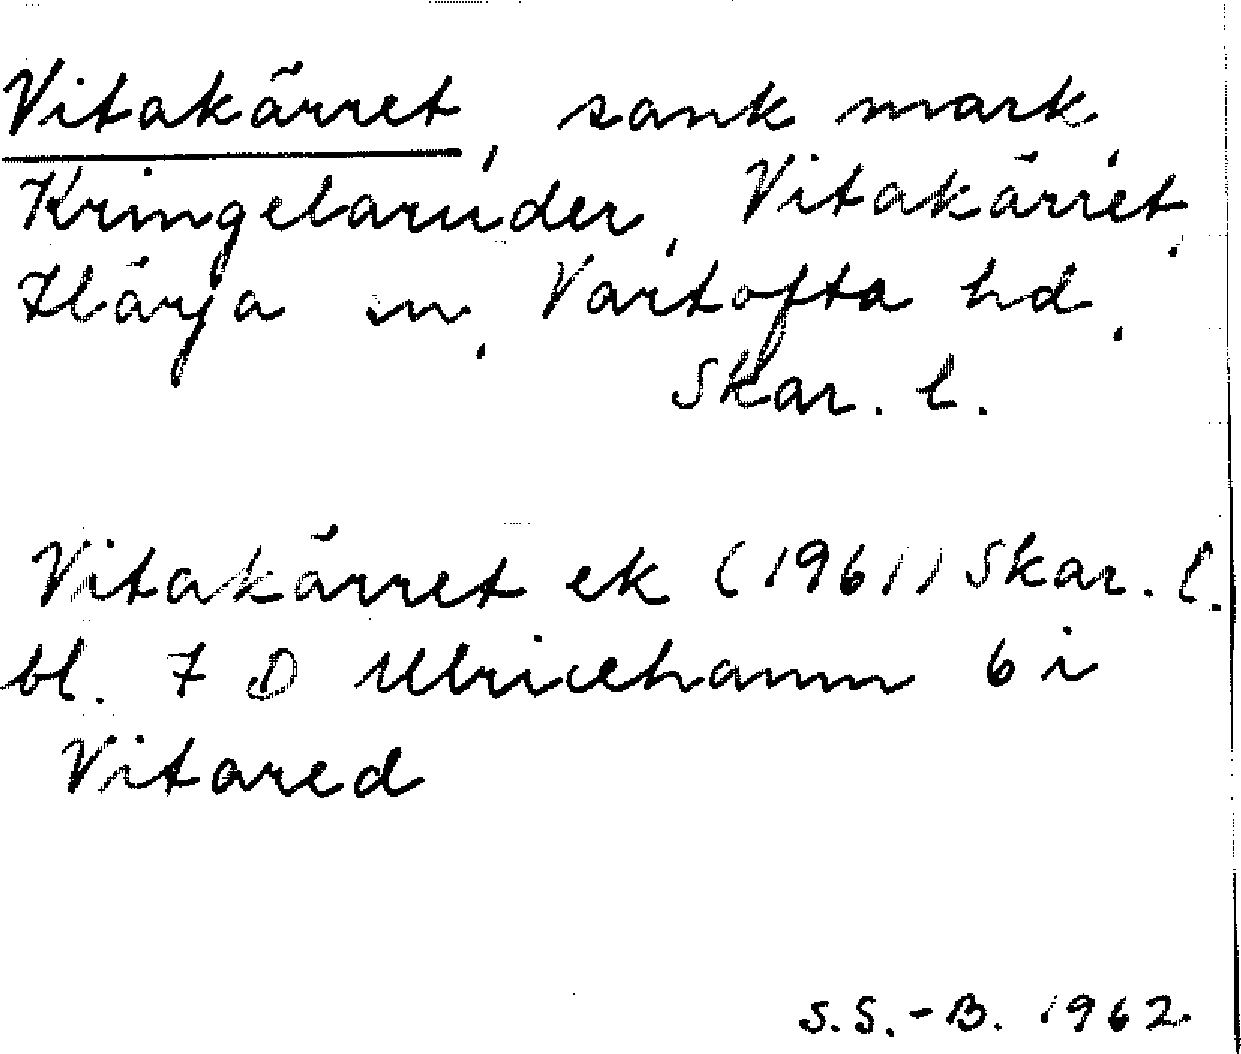 Vitakärret, sank mark,
Kringelaruder, Vitakärret,
Härja sn. Vartofta hd.
Skar. l.
Vitakärret ek (1961) Skar. l.
bl. 7 D Ulricehamn 6 i
Vitared
S.S.-B. 1962.